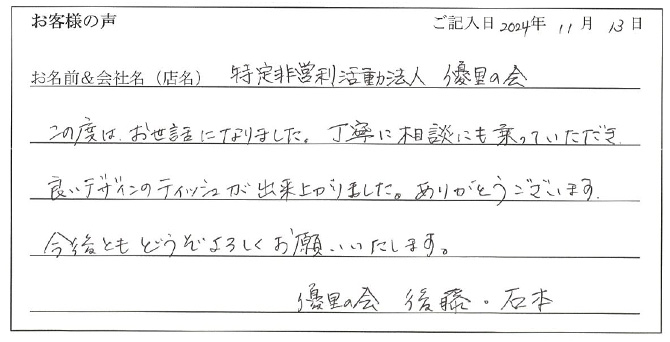 お客様の声 ご記入日 2024年 11月 13日
お名前&会社名(店名) 特定非営利活動法人 優里の会
この度は、お世話になりました。丁寧に相談にも乗っていただき、
良いデザインのティッシュが出来上がりました。ありがとうございます。
今後ともどうぞよろしくお願いいたします。
優里の会 後藤・石本